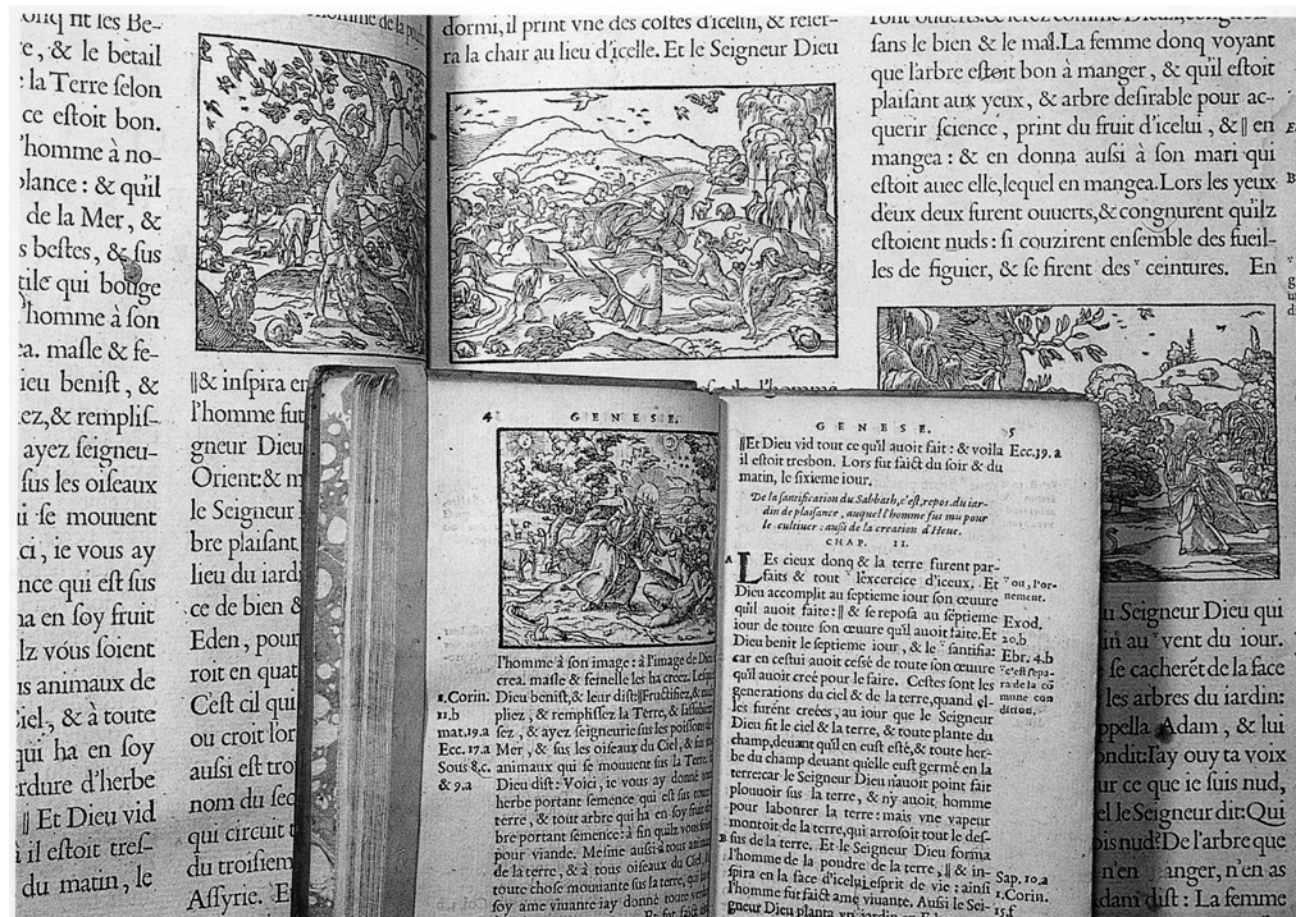 re, & le betail
la Terre ſelon
ce eſtoit bon.
l'homme à no-
blance : & qu'il
de la Mer, &
s beſtes, & ſus
tile qui bouge
l'homme à ſon
ea. maſle & fe-
ieu beniſt, &
iez,& rempliſ-
ayez ſeigneu-
ſus les oiſeaux
ui ſe mouuent
ci, ie vous ay
nce qui eſt ſus
ha en ſoy fruit
ilz vous ſoient
us animaux de
iel, & à toute
qui ha en ſoy
rdure d'herbe
‖ Et Dieu vid
à il eſtoit treſ-
du matin, le
‖& inſpira en
l'homme fut
gneur Dieu
Orient:& m
le Seigneur
bre plaiſant
lieu du iardi
ce de bien &
Eden, pour
roit en quat
C'eſt cil qui
ou croit l'or
auſsi eſt tro
nom du ſec
qui circuit t
du troiſiem
Aſſyrie. Et
dormi, il print vne des coſtes d'icelui, & reſer-
ra la chair au lieu d'icelle. Et le Seigneur Dieu
ſans le bien & le mal. La femme donq voyant
que l'arbre eſtoit bon à manger, & qu'il eſtoit
plaiſant aux yeux, & arbre deſirable pour ac-
querir ſcience, print du fruit d'icelui, & ‖ en
mangea : & en donna auſsi à ſon mari qui
eſtoit auec elle, lequel en mangea. Lors les yeux
d'eux deux furent ouuerts, & congnurent qu'ilz
eſtoient nuds : ſi couzirent enſemble des fueil-
les de figuier, & ſe firent des ceintures. En
u Seigneur Dieu qui
in au vent du iour.
ſe cacherét de la face
les arbres du iardin:
ppella Adam, & lui
ondit:I'ay ouy ta voix
ur ce que ie ſuis nud,
el le Seigneur dit: Qui
ois nud? De l'arbre que
n'en anger, n'en as
dam diſt : La femme
4 GENESE.
l'homme à ſon image : à l'image de Dieu
crea. maſle & femelle les ha creez. Leſq
1.Corin. Dieu beniſt, & leur diſt:‖Fructifiez, & mul
11.b pliez, & rempliſſez la Terre, & l'aſſubiec
mat.19.a ſez, & ayez ſeigneurie ſus les poiſſons de
Ecc. 17.a Mer, & ſus les oiſeaux du Ciel, & ſus to
Sous 8,c. animaux qui ſe mouuent ſus la Terre.
& 9.a Dieu diſt: Voici, ie vous ay donné tou
herbe portant ſemence qui eſt ſus toute
terre, & tout arbre qui ha en ſoy fruit d
bre portant ſemence: à fin qu'ilz vous ſoi
pour viande. Meſme auſsi à tous anima
de la terre, & à tous oiſeaux du Ciel, &
toute choſe mouuante ſus la terre, qui ha
ſoy ame viuante i'ay donné toute verd
GENESE. 5
‖Et Dieu vid tout ce qu'il auoit fait : & voila Ecc.39.a
il eſtoit tresbon. Lors fut faict du ſoir & du
matin, le ſixieme iour.
De la ſantification du Sabbath, c'eſt, repos. du iar-
din de plaiſance, auquel l'homme fut mis pour
le cultiuer : auſsi de la creation d'Heue.
CHAP. II.
A LEs cieux donq & la terre furent par-
faits & tout l'exercice d'iceux. Et ou, l'or-
Dieu accomplit au ſeptieme iour ſon œuure nement.
qu'il auoit faite: ‖ & ſe repoſa au ſeptieme Exod.
iour de toute ſon œuure qu'il auoit faite. Et 20.b
Dieu benit le ſeptieme iour, & le ſantifia: Ebr. 4.b
car en ceſtui auoit ceſsé de toute ſon œuure c'eſt ſepa-
qu'il auoit creé pour le faire. Ceſtes ſont les ra de la cō
generations du ciel & de la terre, quand el- mune con
les furent creées, au iour que le Seigneur dition.
Dieu fit le ciel & la terre, & toute plante du
champ, deuant qu'il en euſt eſté, & toute her-
be du champ deuant qu'elle euſt germé en la
terre: car le Seigneur Dieu n'auoit point fait
plouuoir ſus la terre, & n'y auoit homme
pour labonrer la terre : mais vne vapeur
montoit de la terre, qui arroſoit tout le deſ-
B ſus de la terre. Et le Seigneur Dieu forma
l'homme de la poudre de la terre, ‖ & in- Sap. 10,a
ſpira en la face d'icelui, eſprit de vie : ainſi 1.Corin.
l'homme fut faict ame viuante. Auſsi le Sei- 15.f
gneur Dieu planta vn iardin en